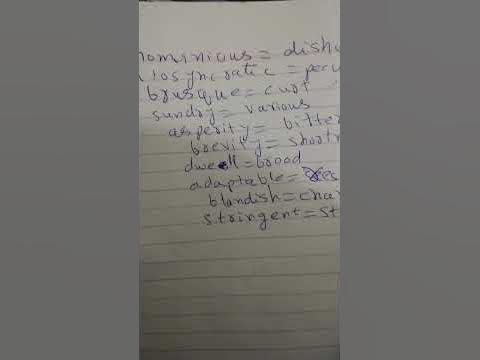 nominious = dish
iosyncratic = pecu
brusque = curt
sundry = various
asperity = bitter
brevity = shortn
dwell = brood
adaptable = es
blandish = cha
stringent = st